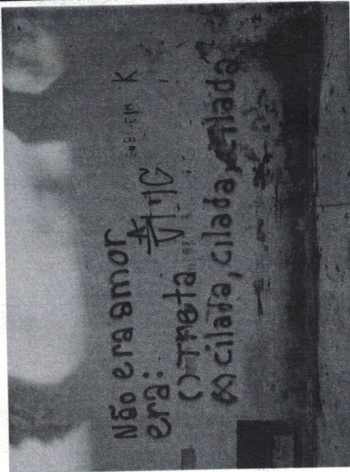 Não era amor
era:
() Treta
(x) cilada, cilada, cilada